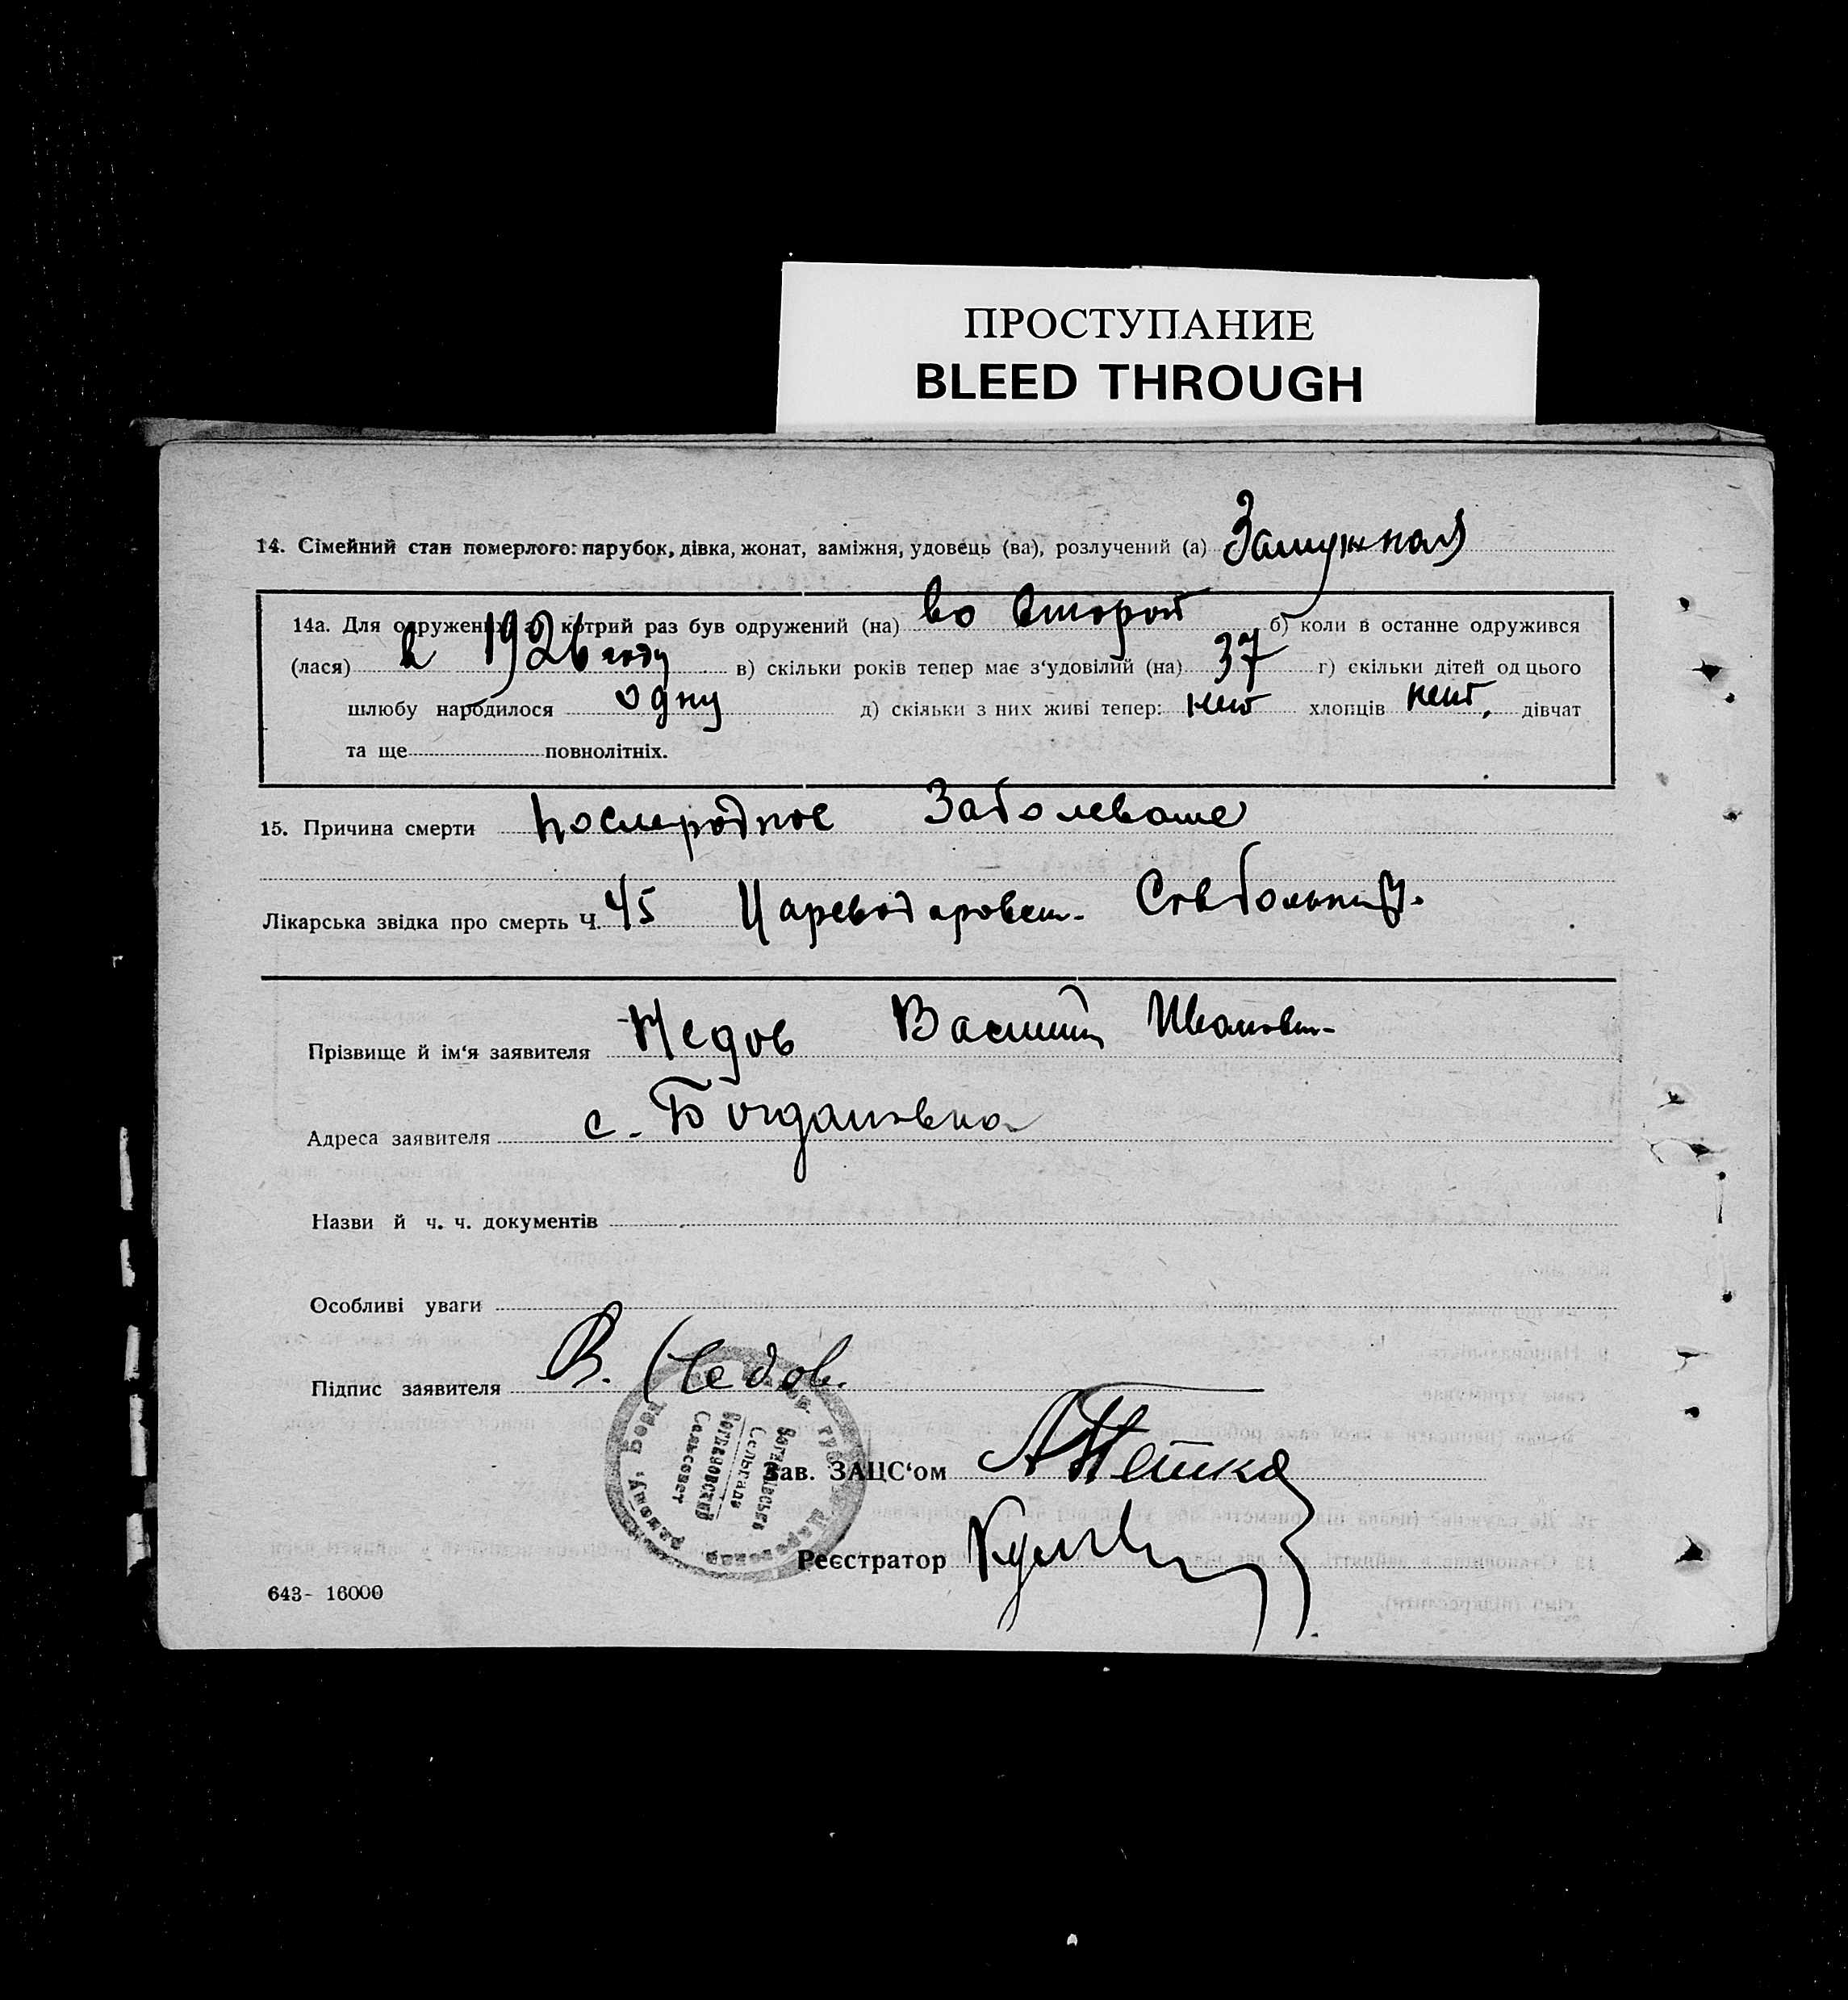 ПРОСТУПАНИЕ
BLEED THROUGH
14. Сімейний стан померлого: парубок, дівка, жонат, заміжня, удовець (ва), розлучений (а) Замужная
14а. Для одружених: а) котрий раз був одружений (на) во второй б) коли в останне одружився
(лася) в 1926 году в) скільки років тепер має з‘удовілий (на) 37 г) скільки дітей од цього
шлюбу народилося одну д) скільки з них живі тепер: нет хлопців нет, дівчат
та ще повнолітніх.
15. Причина смерти Послеродное Заболевание
Лікарська звідка про смерть Ч. 45 Цареводаровск.
Прізвище й ім‘я заявителя Недов Василий Иванович
Адреса заявителя с. Богдановка
Назви й ч. ч. документів
Особливі уваги
Підпис заявителя В. Недов.
Зав. ЗАЦС‘ом
Реєстратор
Богданівська
Сельрада
Богдановский
Сельсовет
643- 16000